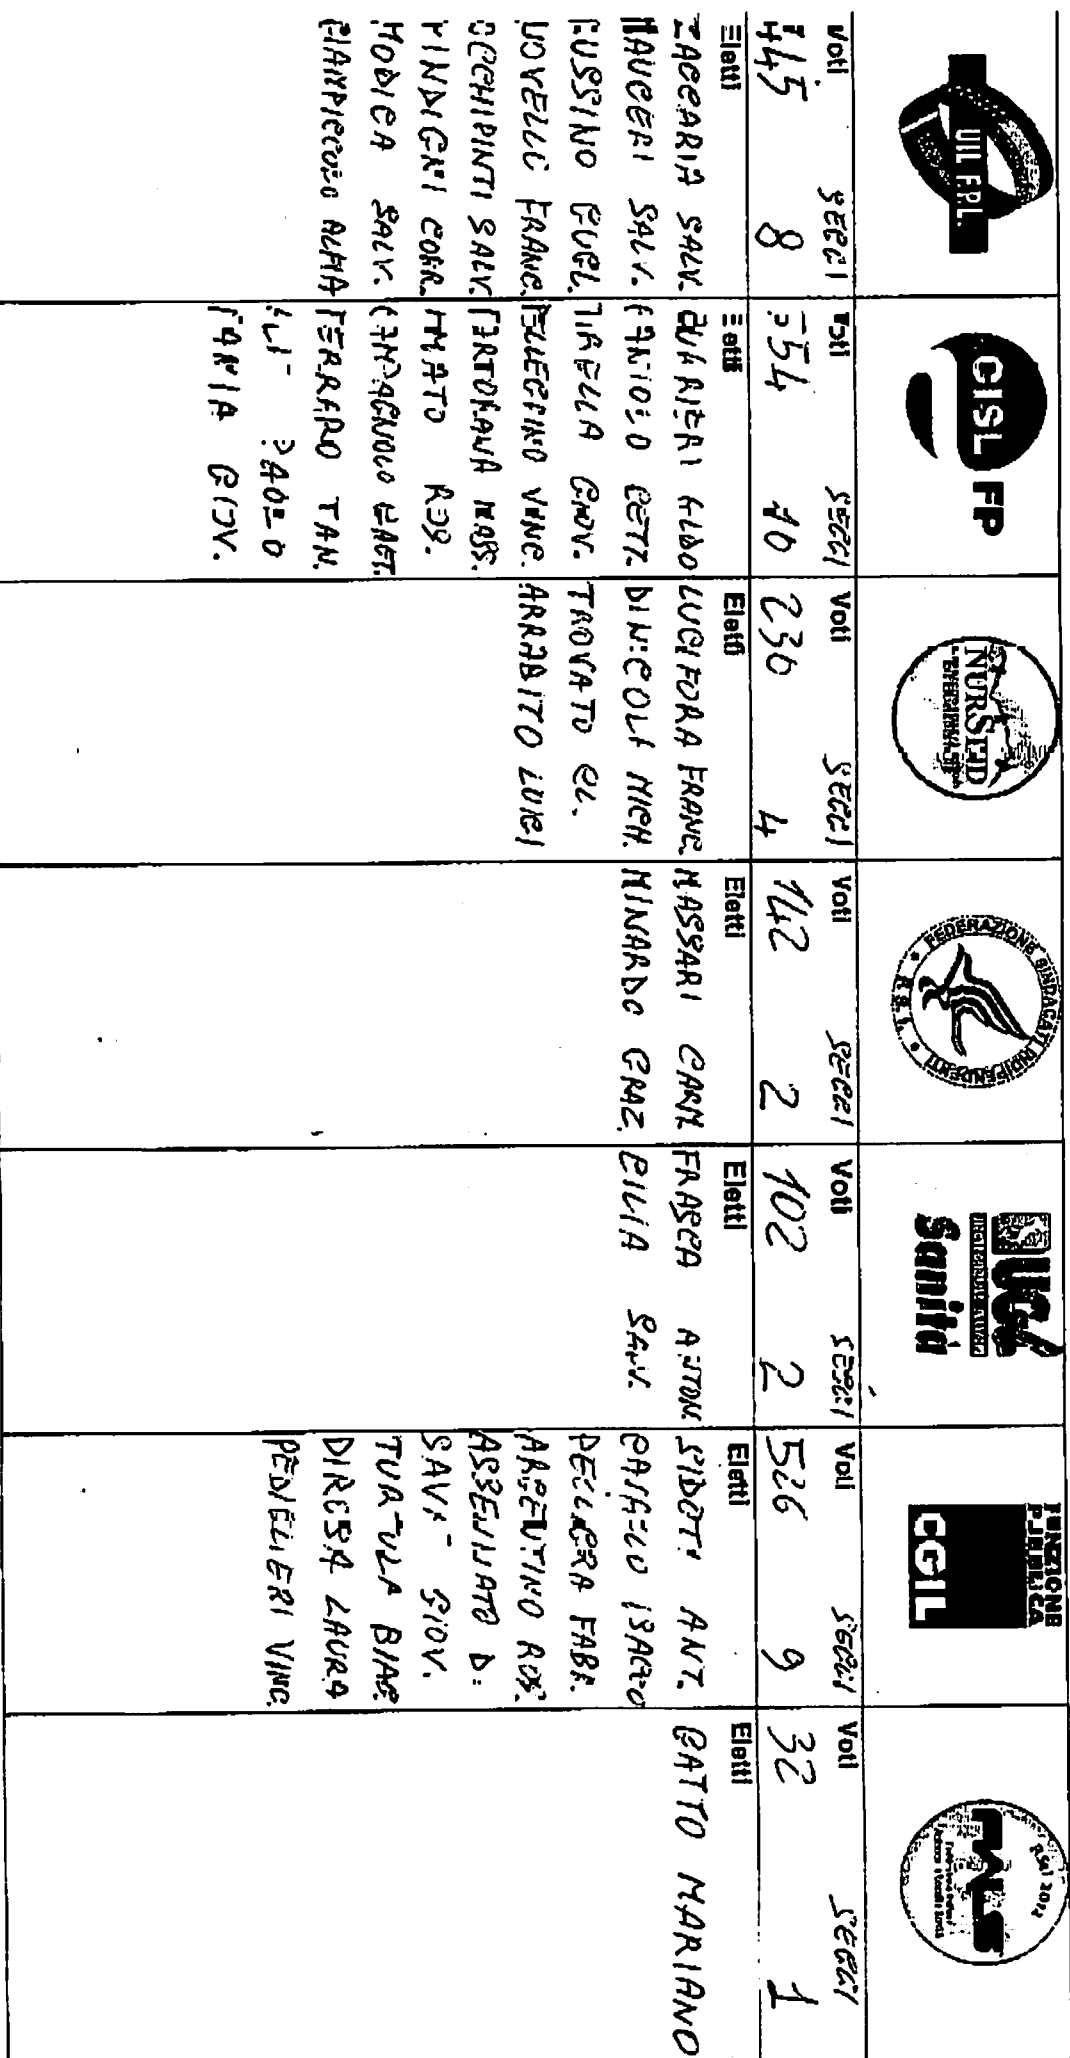 UIL F.P.L.
Voti SEGGI
445 8
Eletti
ZACCARIA SALV.
MAUCERI SALV.
GUSSINO GUGL.
LOVELLO FRANC.
OCCHIPINTI SALV.
PINDIGNI CORR.
MODICA SALV.
GIAMPICCOLO ALMA
CISL FP
Voti SEGGI
554 10
Eletti
GUARIERI ALDO
GIOV.
PELLEGRINO VINC.
TARTORANA MASS.
AMATO ROS.
FERRARO TAN.
PAOLO
TANIA GIOV.
NURSIND
Voti SEGGI
236 4
Eletti
LUCIFORA FRANC.
DINICOLI MICH.
TROVATO CL.
ARRABITO LUIGI
FEDERAZIONE SINDACATI INDIPENDENTI
F.S.I.
Voti SEGGI
142 2
Eletti
MASSARI CARM
MINARDO GRAZ.
UGL
Sanità
Voti SEGGI
102 2
Eletti
FRASCA ANTON.
CILIA SALV.
FUNZIONE
PUBBLICA
CGIL
Voti SEGGI
526 9
Eletti
SIDOTI ANT.
ISACCO
PELLEGRA FABR.
ARGENTINO ROS.
ASSENNATO D.
GIOV.
BIAG.
LAURA
VINC.
RSU 2012
FIALS
Voti SEGGI
32 1
Eletti
GATTO MARIANO